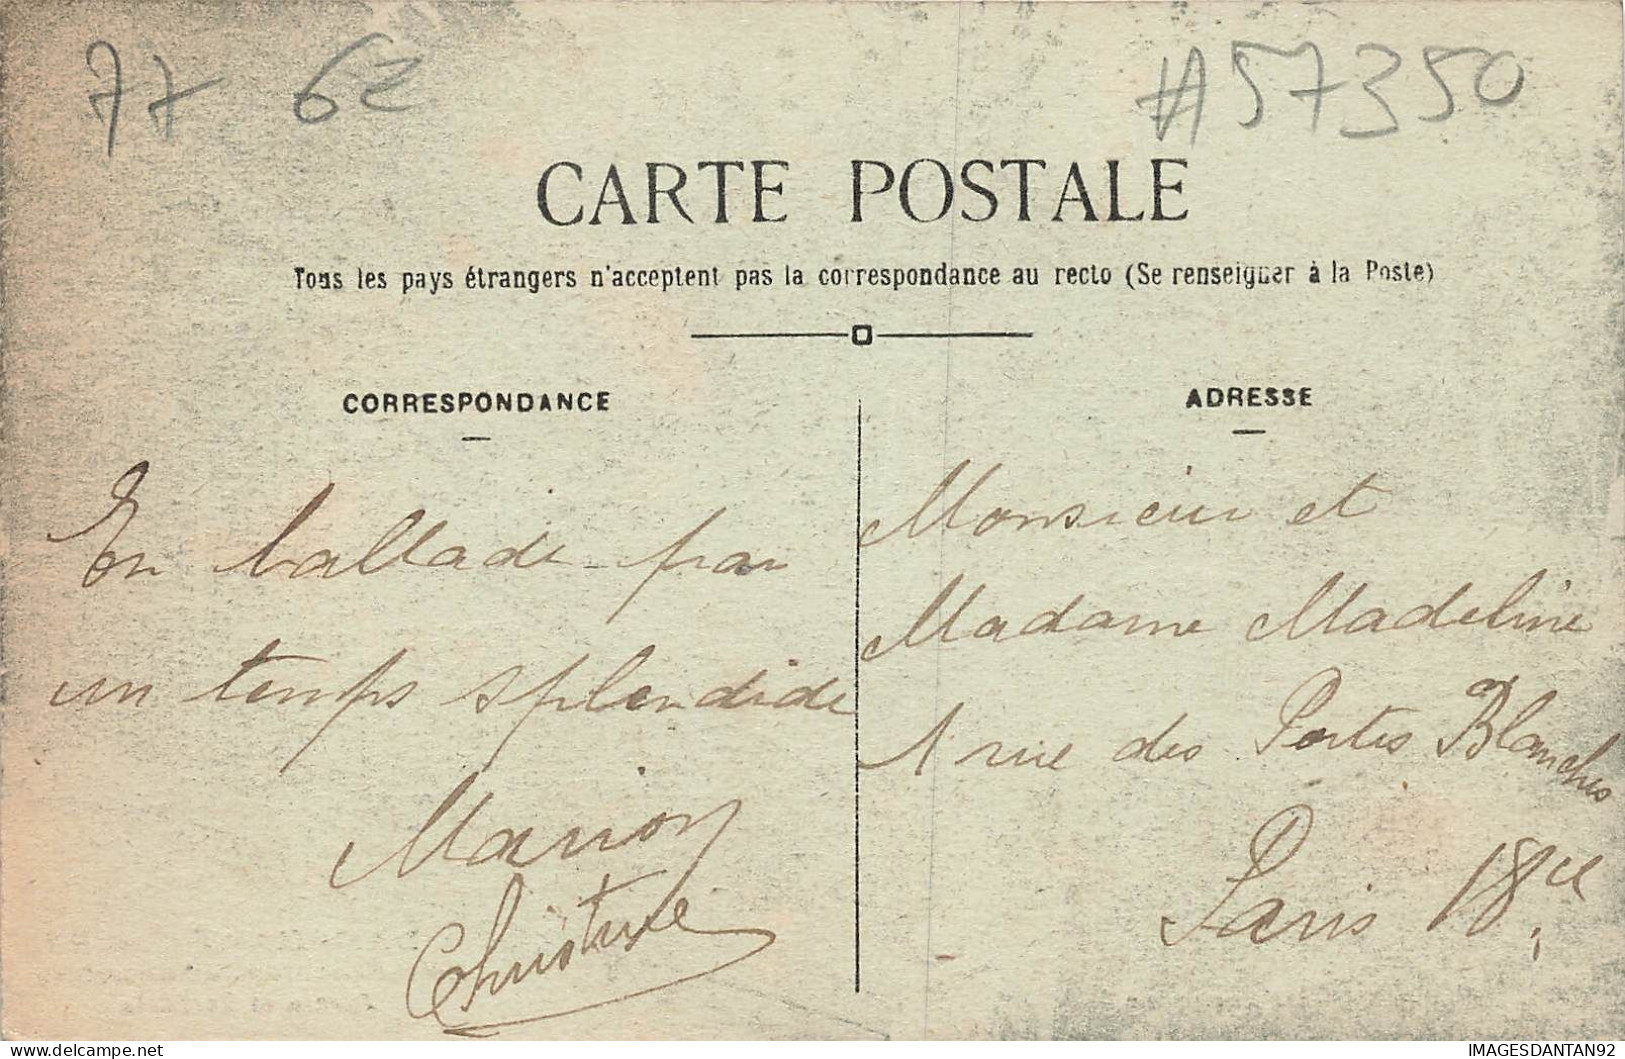 77 62 #57350
CARTE POSTALE
Tous les pays étrangers n'acceptent pas la correspondance au recto (Se renseigner à la Poste)
CORRESPONDANCE
En ballade par
un temps splendide
Marion
Christiane
ADRESSE
Monsieur et
Madame Madeline
1 rue des Portes Blanches
Paris 18ce
delcampe.net
IMAGESDANTAN92